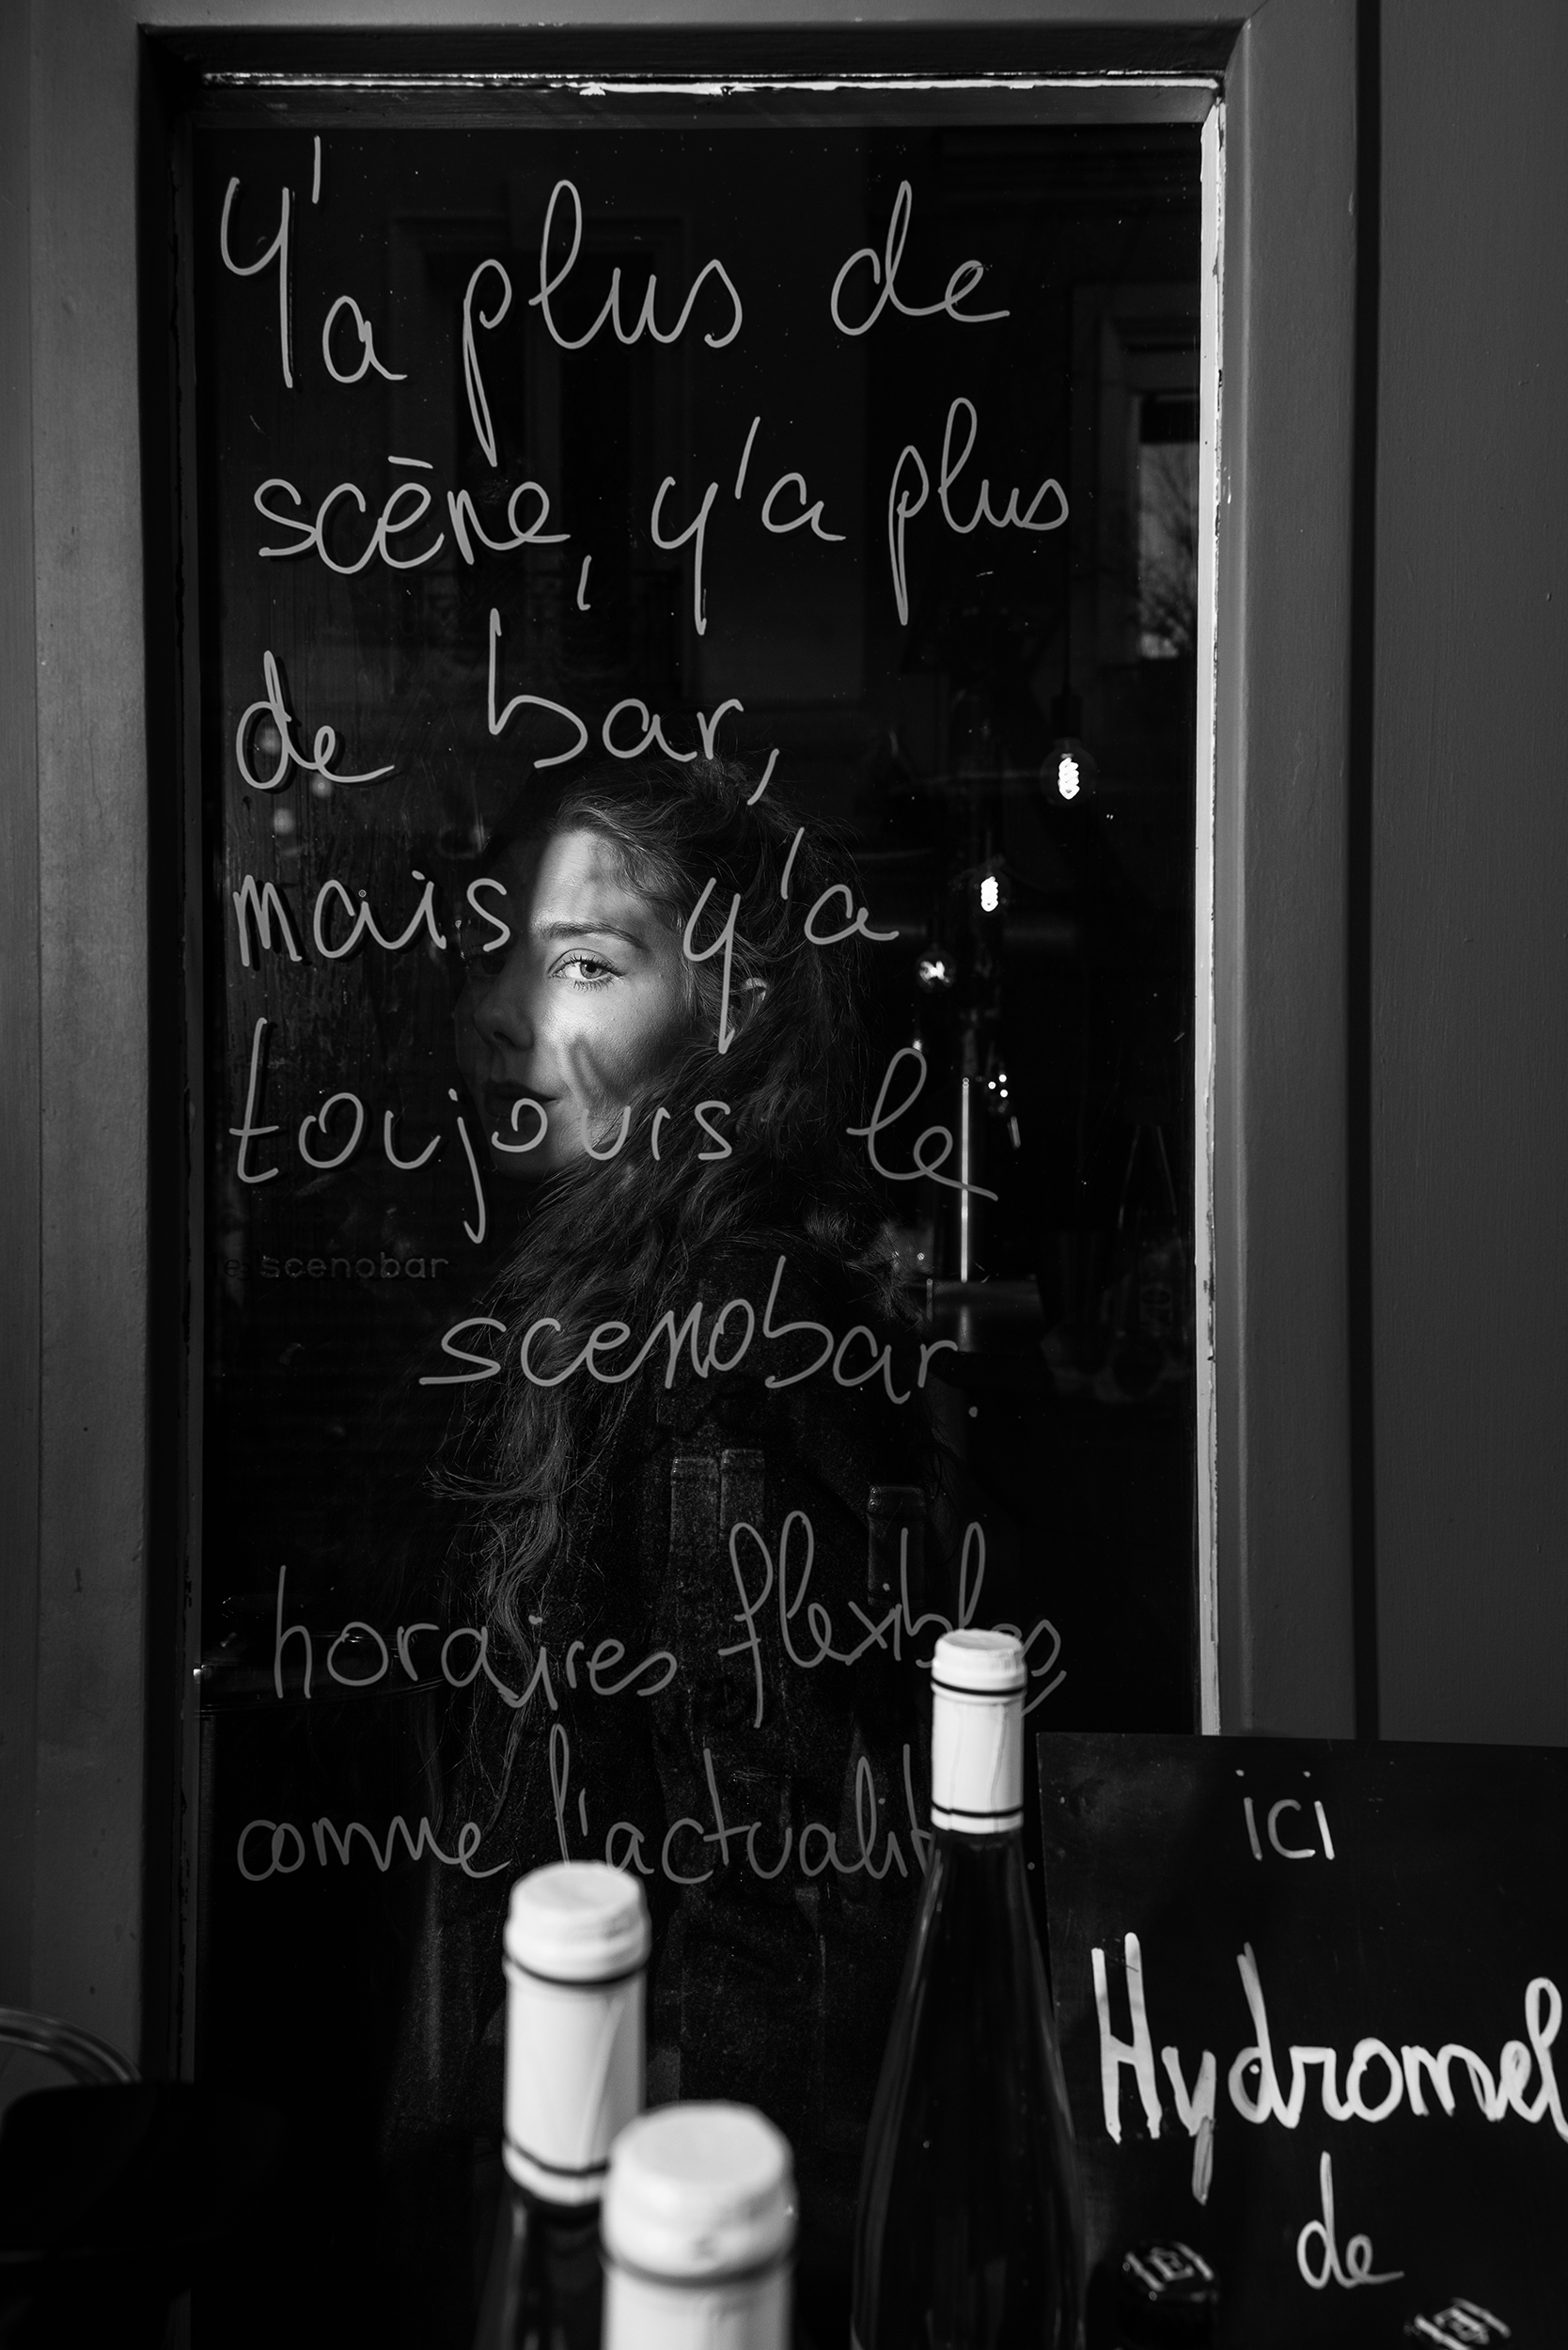 Y'a plus de
scène, y'a plus
de bar,
mais y'a
toujours le
scenobar
scenobar
horaires flexibles
comme l'actualit
ici
Hydromel
de